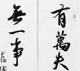 有萬夫
無一事